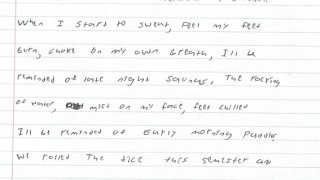 When I start to sweat, feel my feet
burn, choke on my own breath, I'll be
reminded of late night saunas. The rocking
of water, mist on my face, feet chilled
I'll be reminded of early morning paddle.
We rolled the dice this semester and